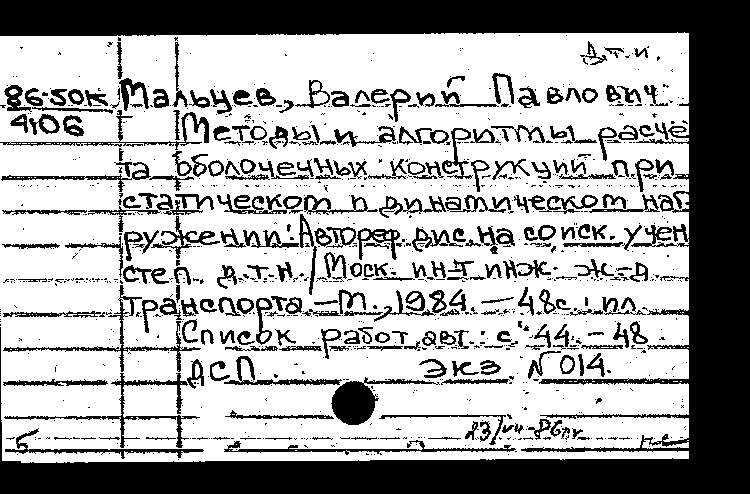 д.т.н.
86-50к Мальцев, Валерий Павлович
4106 Методы и алгоритмы расчё
та оболочечных конструкций при
статическом и динамическом наг-
ружении: Автореф. дис. на соиск. учен
степ. д.т.н. / Моск. ин-т инж. ж-д
транспорта. — М., 1984. — 48с.: ил
Список работ авт.: с. 44 – 48.
ДСП. Экз. №014.
23/VII-86
5